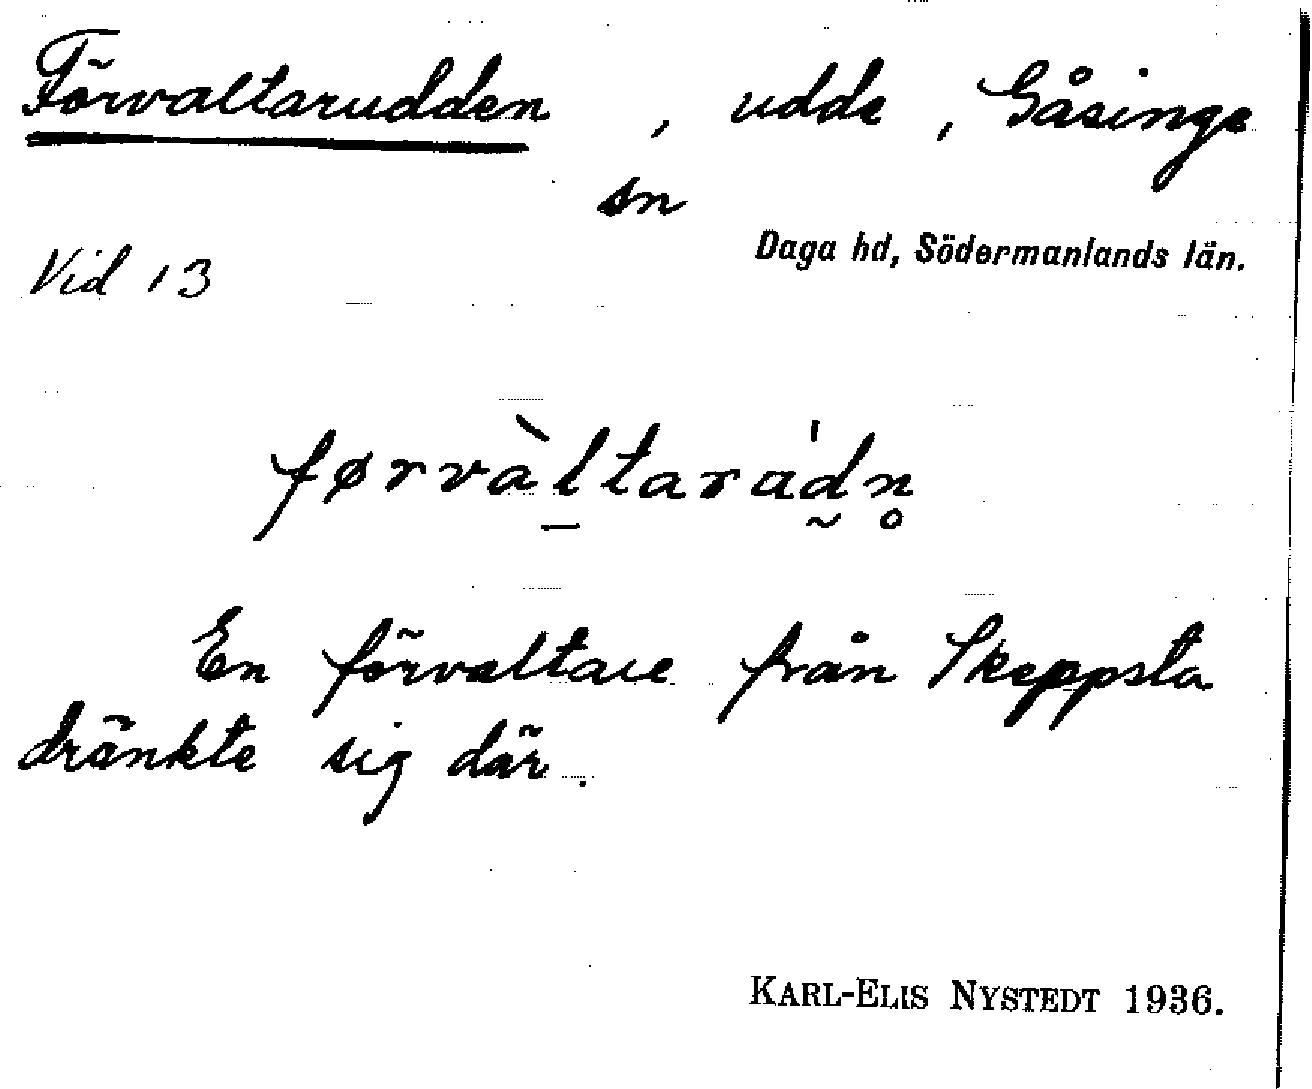 Förvaltarudden, udde, Gåsinge
sn
Daga hd, Södermanlands län.
Vid 13
førvàltarúdn̥
En förvaltare från Skeppsta
dränkte sig där.
KARL-ELIS NYSTEDT 1936.